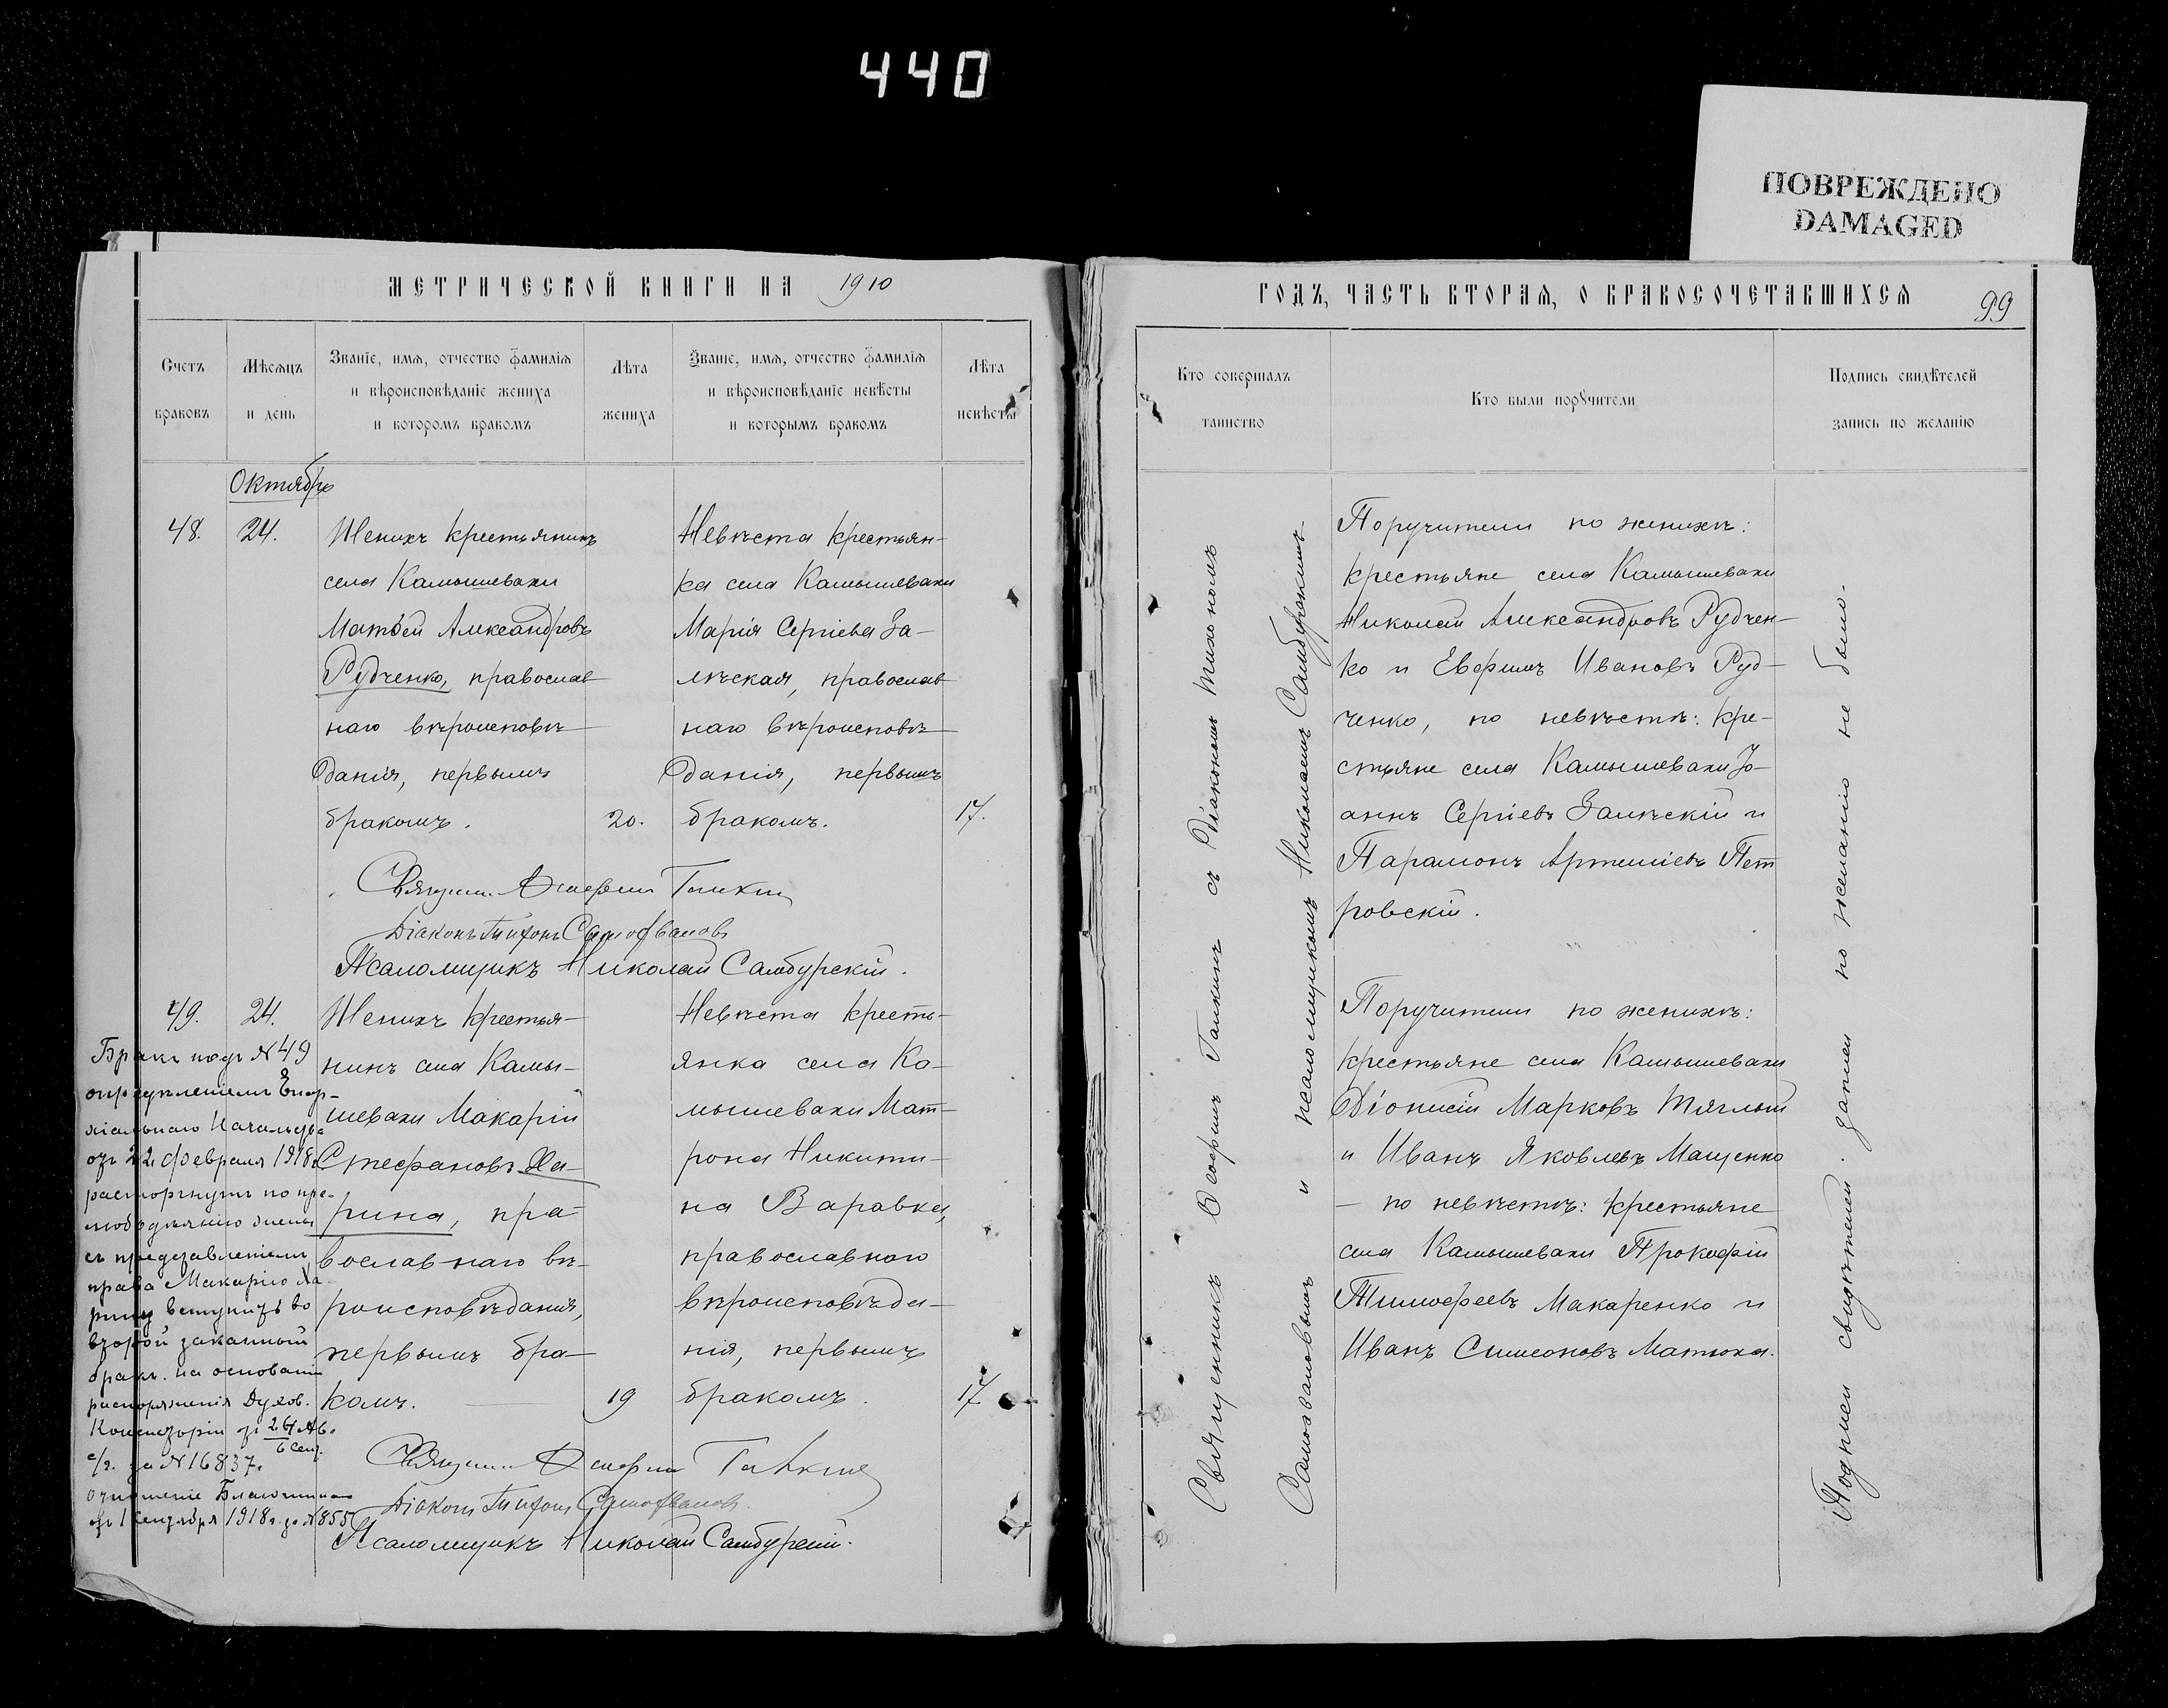 440
ПОВРЕЖДЕНО
DAMAGED
МЕТРИЧЕСКОЙ КНИГИ НА 1910
Счетъ браковъ
Мѣсяцъ и день
Званіе, имя, отчество фамилія
и вѣроисповѣданіе жениха
и которомъ бракомъ
Лѣта жениха
Званіе, имя, отчество фамилія
и вѣроисповѣданіе невѣсты
и которымъ бракомъ
Лѣта невѣсты
Октябрь
48.
24.
Женихъ крестьянинъ
села Камышевахи
Матѳей Александровъ
Рудченко, православ
наго вѣроисповѣ
данія, первымъ
бракомъ.
20.
Невѣста крестьян-
ка села Камышевахи
Марія Сергіева За-
лѣская, православ
наго вѣроисповѣ
данія, первымъ
бракомъ.
17.
Діаконъ Тихонъ Самозвановъ
Псаломщикъ Николай Самбурскій.
49.
24.
Женихъ крестья-
нинъ села Камы-
шевахи Макарій
Стефановъ Ха-
рина, пра-
вославнаго вѣ-
роисповѣданія,
первымъ бра-
комъ.
19
Невѣста кресть-
янка села Ка-
мышевахи Мат-
рона Никити-
на Варавка,
православнаго
вѣроисповѣда-
нія, первымъ
бракомъ.
17
Бракъ подъ №49
опредѣленіемъ Епар-
хіальнаго Начальства
отъ 22 февраля 1918 г.
расторгнутъ по пре-
любодѣянію жены
съ предоставленіемъ
права Макарію Ха-
рину вступить во
второй законный
бракъ. на основаніи
распоряженія Духов.
Консисторіи отъ 24 Ав.
6 Сент.
с/г. за №16837.
отношеніе Благочиннаго
отъ 1 сентября 1918 г. за №855
Діаконъ Тихонъ Самозвановъ.
Псаломщикъ Николай Самбурскій.
ГОДЪ, ЧАСТЬ ВТОРАЯ, О БРАКОСОЧЕТАВШИХСЯ
99
Кто совершалъ
таинство
Кто были поручители
Подпись свидѣтелей
запись по желанію
Священникъ Галкинъ съ Діакономъ Тихономъ
Самозвановымъ и псаломщикомъ Николаемъ Самбурскимъ.
Поручители по женихѣ:
крестьяне села Камышевахи
Николай Александровъ Рудчен-
ко и Евфимъ Ивановъ Руд-
ченко, по невѣстѣ: кре-
стьяне села Камышевахи Іо-
аннъ Сергіевъ Залѣскій и
Парамонъ Артеміевъ Пет
ровскій.
Поручители по женихѣ:
крестьяне села Камышевахи
Діонисій Марковъ Тяглый
и Иванъ Яковлевъ Мащенко
— по невѣстѣ: крестьяне
села Камышевахи Прокофій
Тимофеевъ Макаренко и
Иванъ Симеоновъ Матюха.
Подписи свидѣтелей записи по желанію не было.